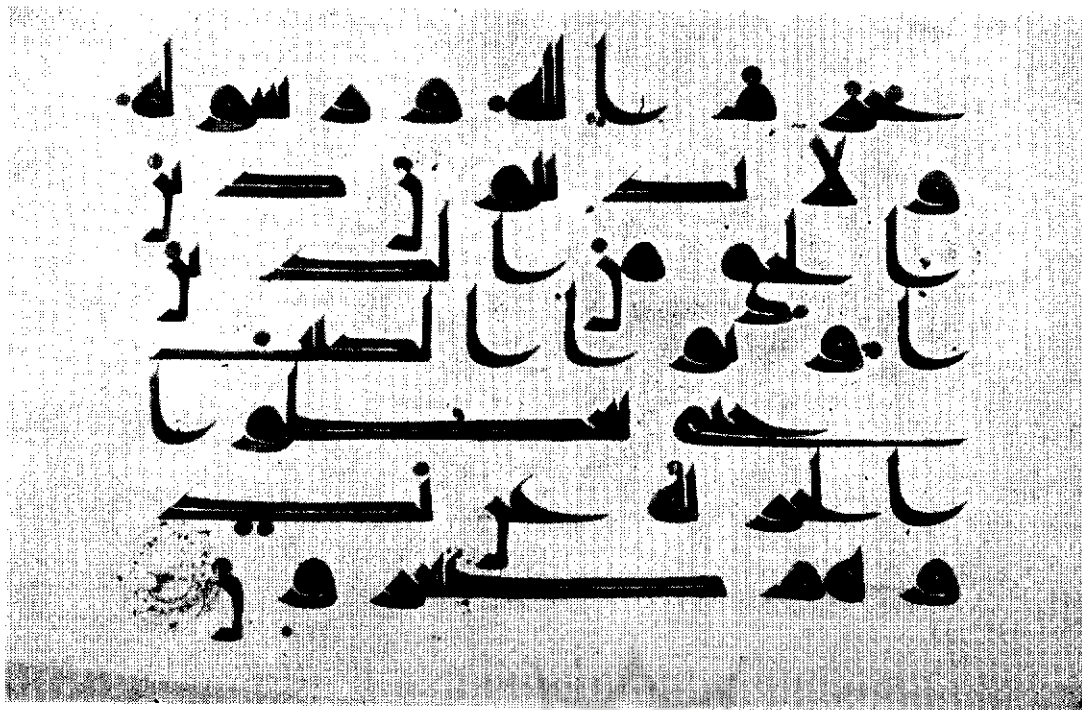 حرم الله ورسوله
ولا يدينون دين
الحق من الذين
اوتوا الكتب
حتى يعطوا
الجزية عن يد
وهم صغرون